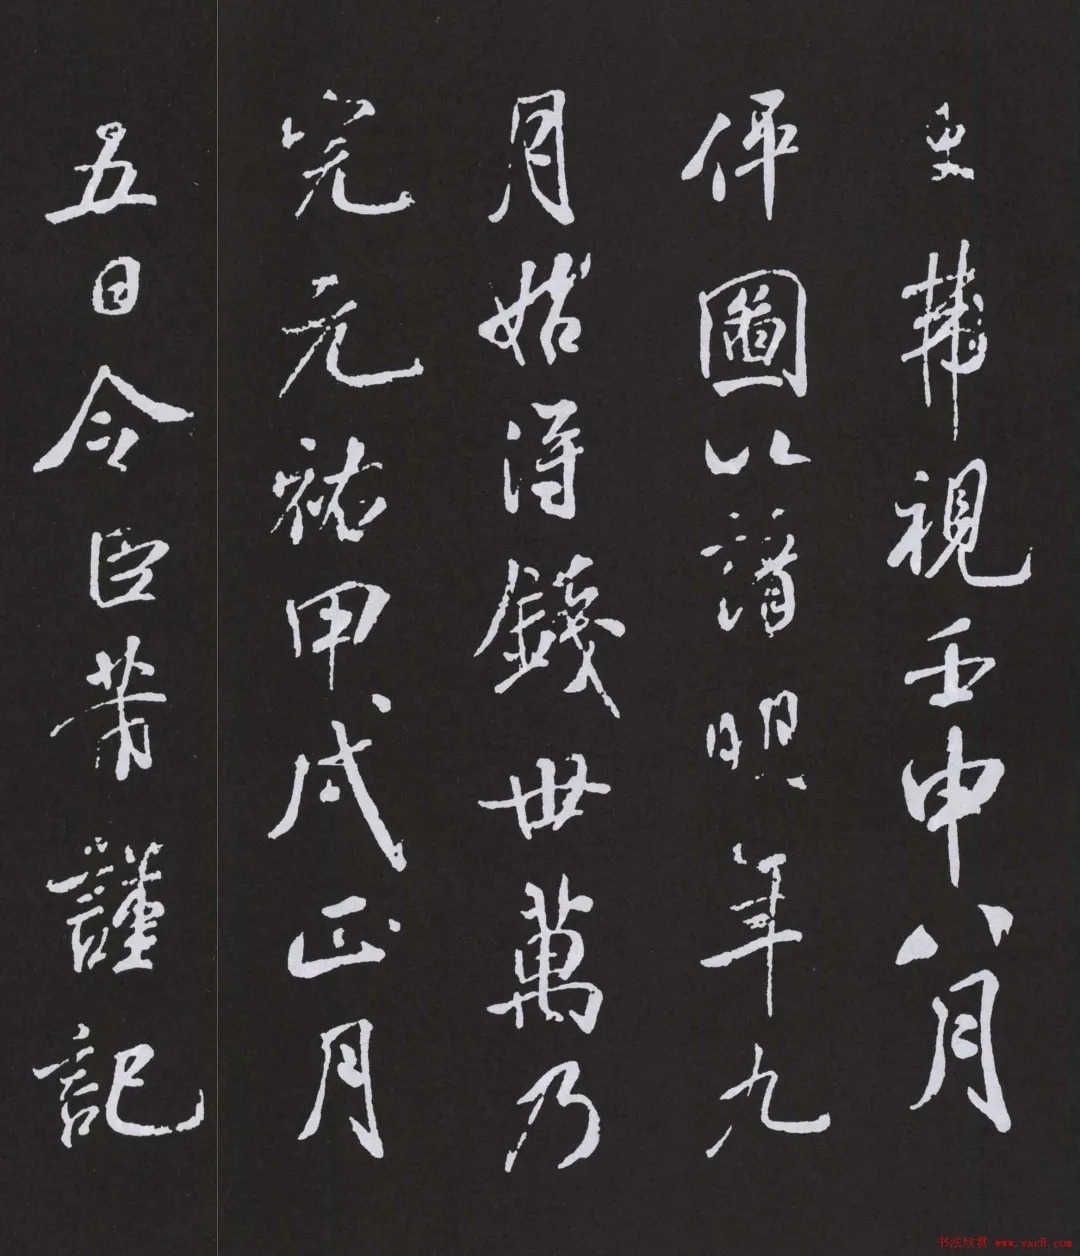 史韩視壬申八月
伻圖以請明年九
月始得錢卅萬乃
完元祐甲戌正月
五日令臣芾謹記
书法欣赏 www.yac8.com